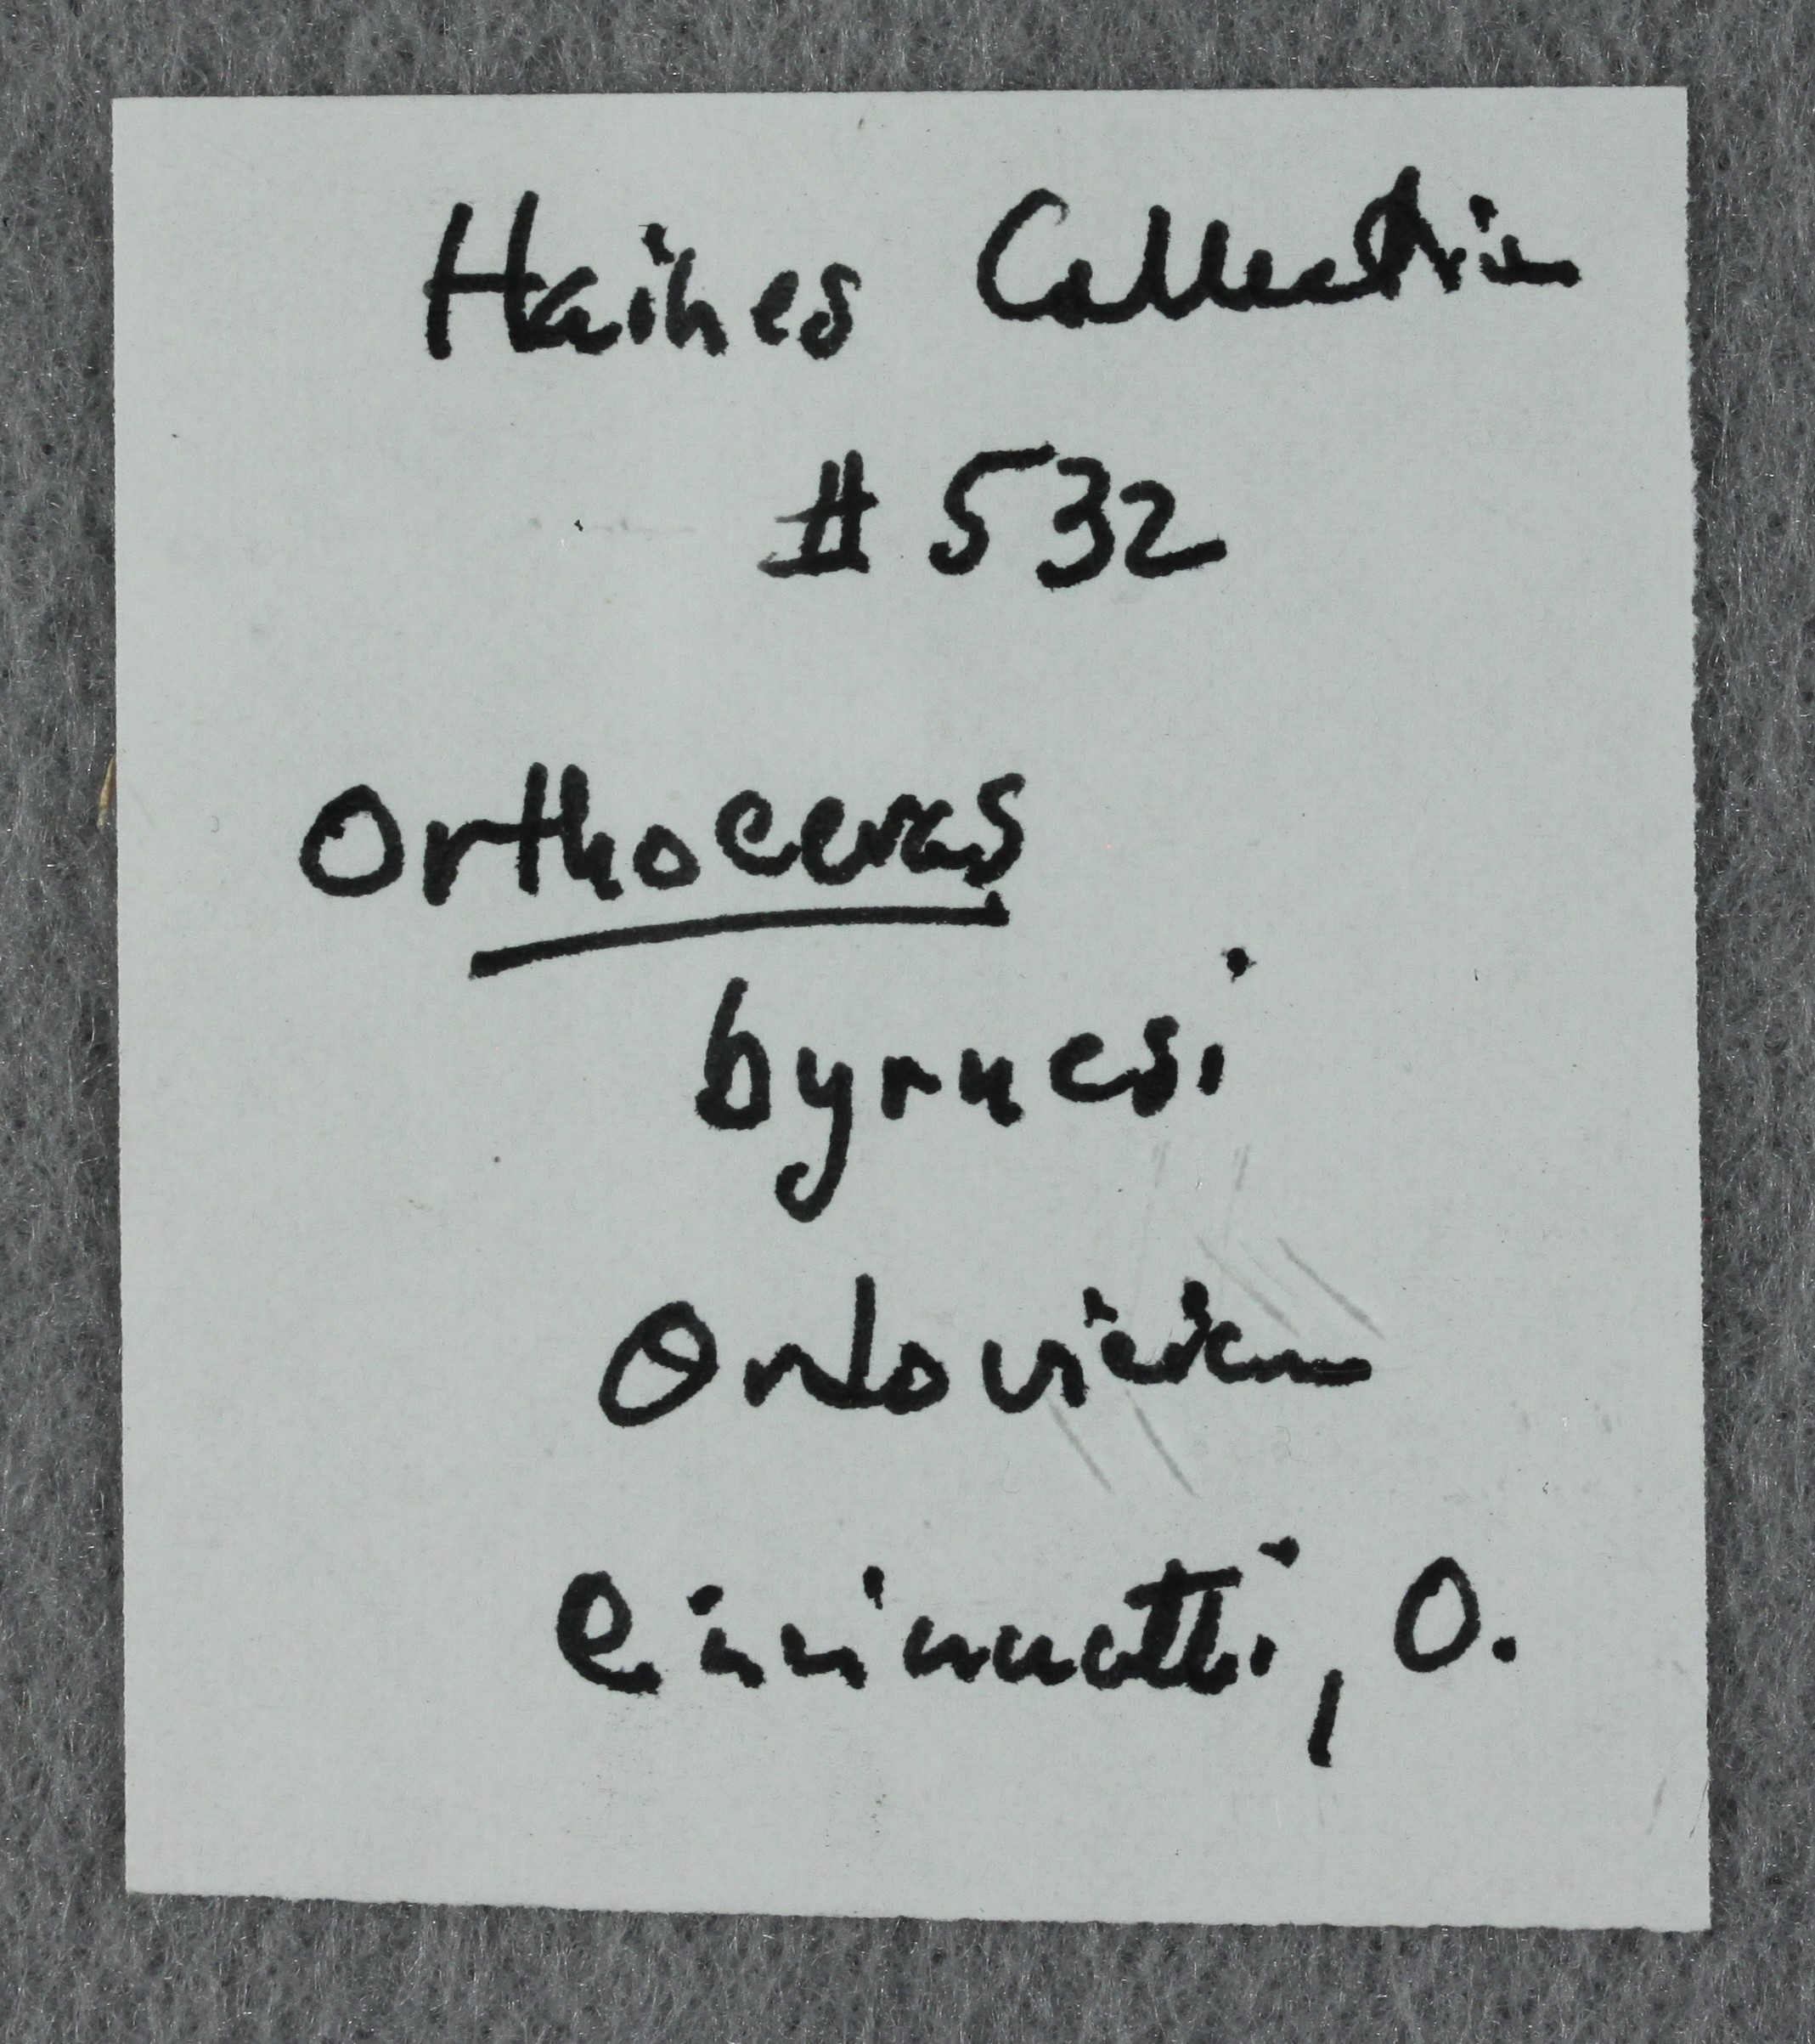 Haines Collection
# 532
Orthoceras
byrnesi
Ordovician
Cincinnatti, O.